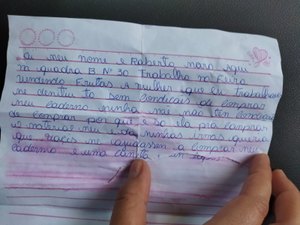 Oi meu nome e Roberto moro aqui
na quadra B Nº 30 Trabalho na Feira
vendendo Frutas a mulher que eu trabalhava
me demitiu to sem condicais de comprar
meu caderno minha mai não tem condicais
de comprar por que e so ela pra comprar
os materias meu e das minhas irmas queria
que voces me ajudassem a comprar meu
caderno e uma caneta, um